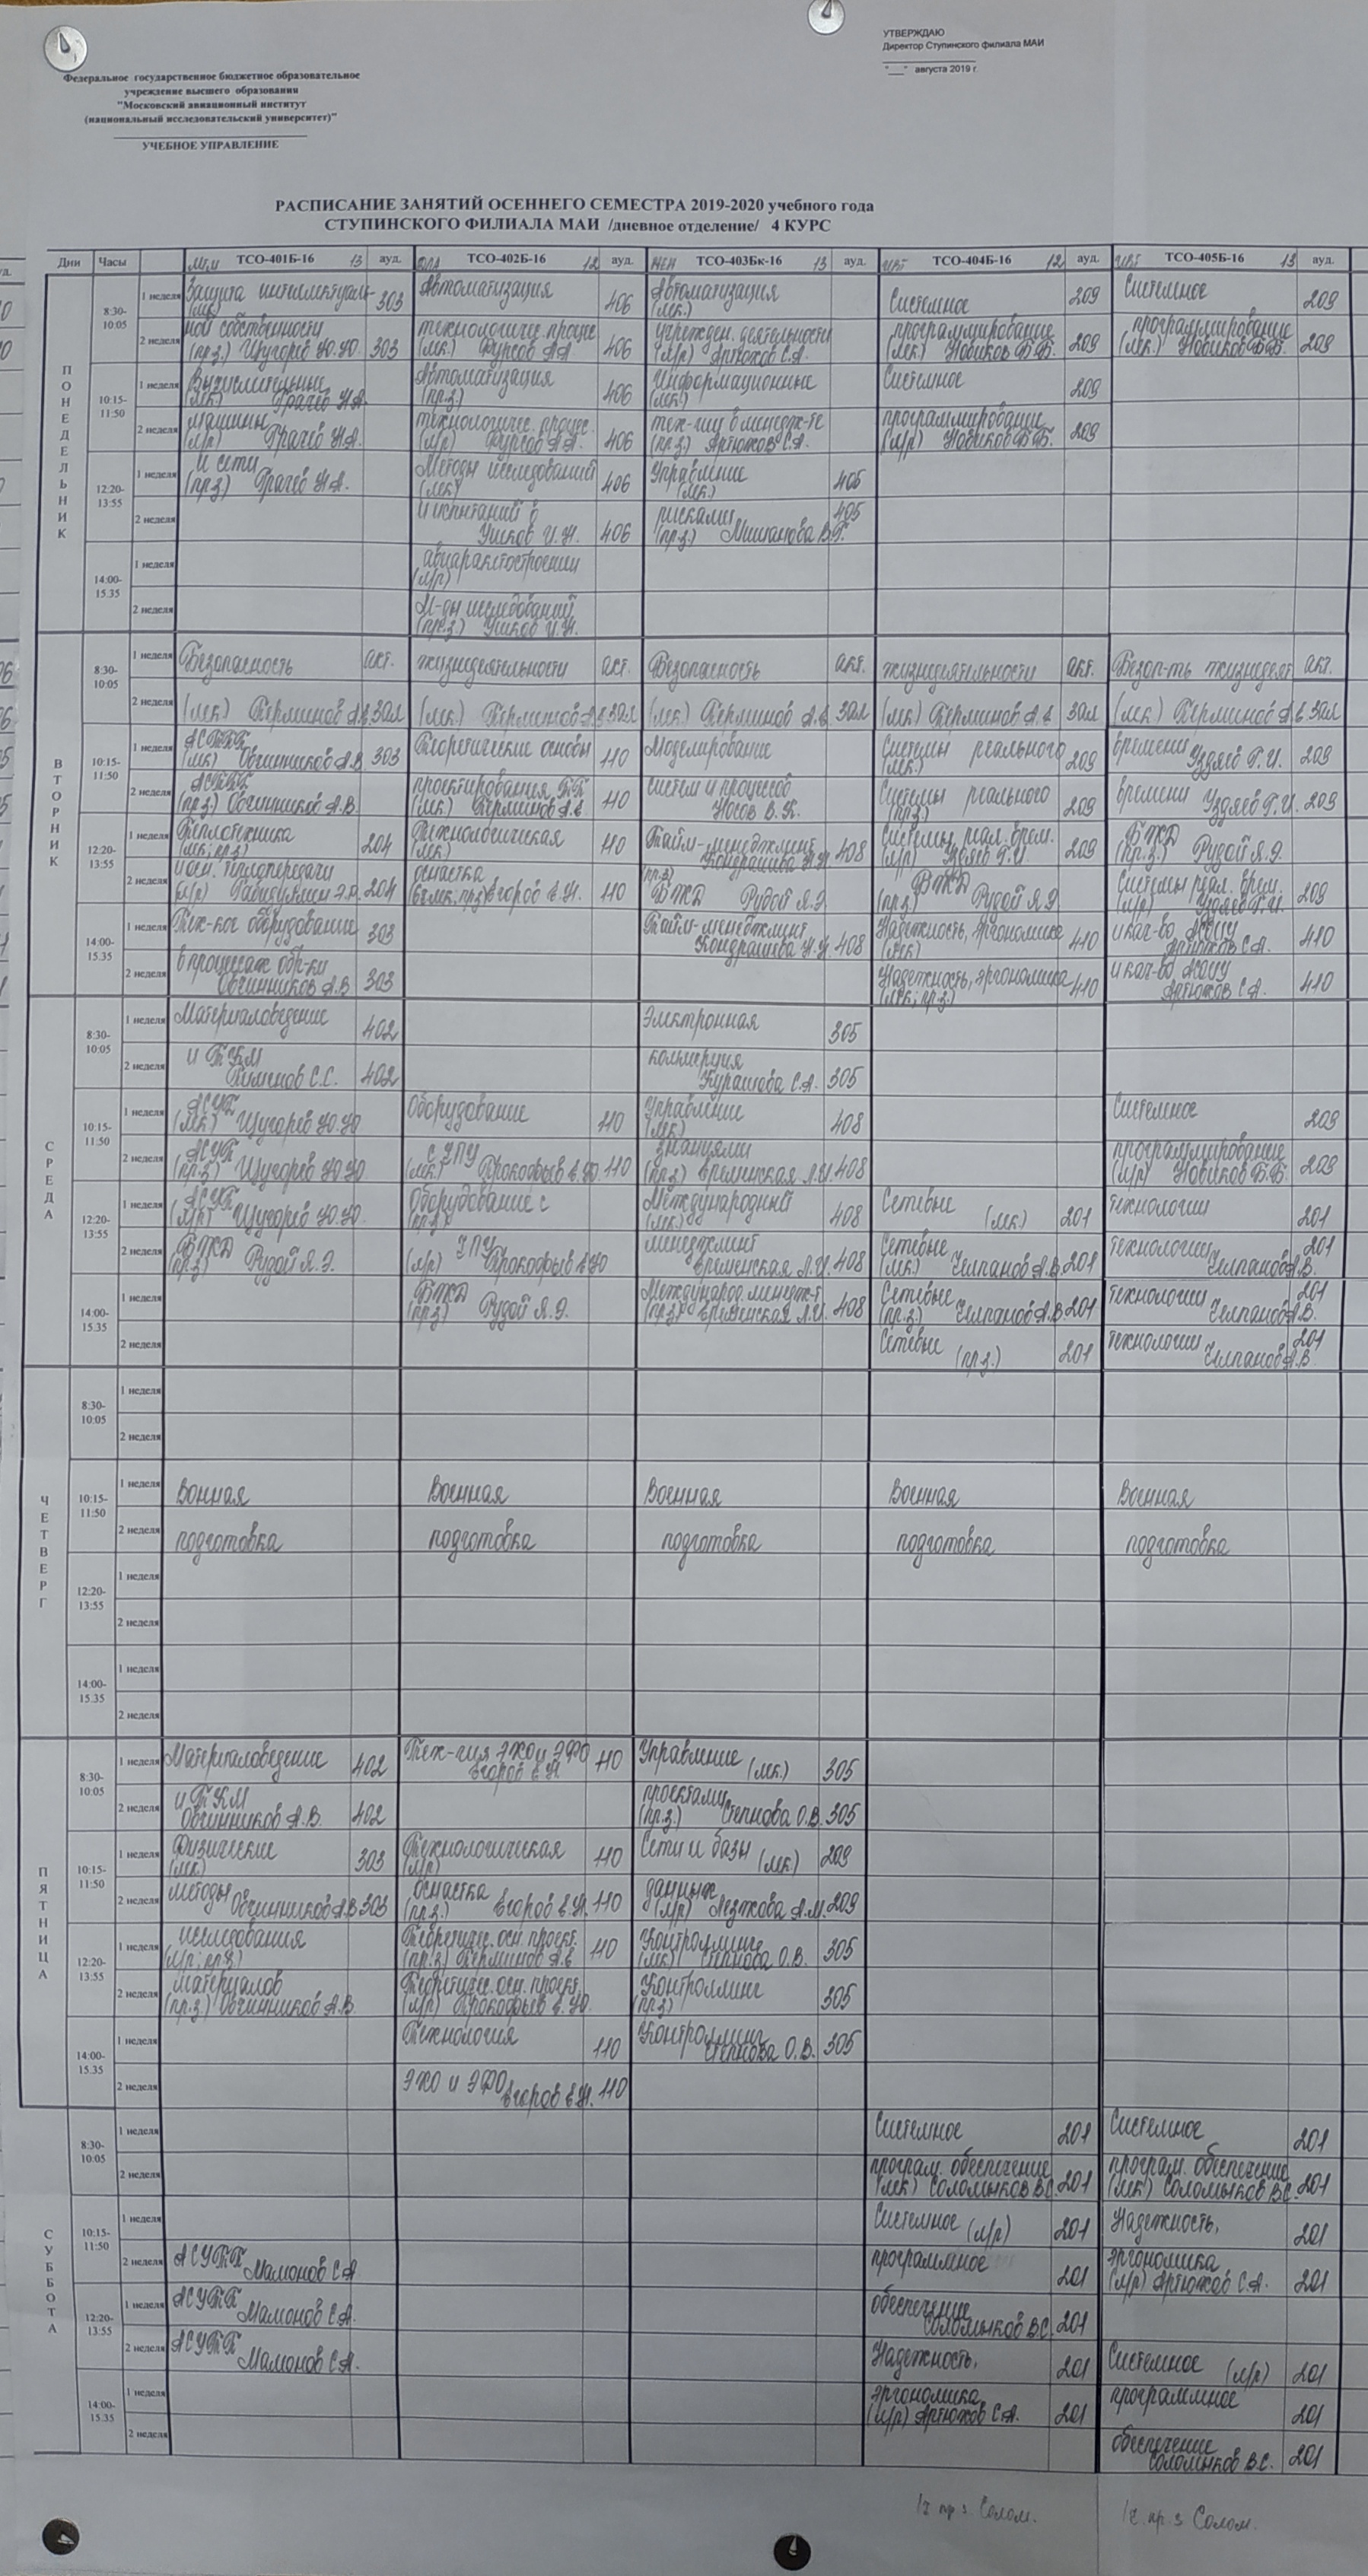 УТВЕРЖДАЮ
Директор Ступинского филиала МАИ
"___" августа 2019 г.
Федеральное государственное бюджетное образовательное
учреждение высшего образования
"Московский авиационный институт
(национальный исследовательский университет)"
УЧЕБНОЕ УПРАВЛЕНИЕ
РАСПИСАНИЕ ЗАНЯТИЙ ОСЕННЕГО СЕМЕСТРА 2019-2020 учебного года
СТУПИНСКОГО ФИЛИАЛА МАИ /дневное отделение/ 4 КУРС
Дни Часы ТСО-401Б-16 13 ауд. ТСО-402Б-16 12 ауд. МЕН ТСО-403Бк-16 13 ауд. ИВТ ТСО-404Б-16 12 ауд. ИВТ ТСО-405Б-16 13 ауд.
ПОНЕДЕЛЬНИК
8:30-10:05
1 неделя Защита интеллектуаль- (лк) 303 Автоматизация 406 Автоматизация (лек.) Системное 209 Системное 209
2 неделя ной собственности (пр.з.) Щугорев Ю.Ю. 303 технологичес. процес (лк.) Фурсов А.А 406 учрежден. деятельности (л/р) Артюхов С.А. программирование (лек.) Новиков Б.Б. 209 программирование (лек.) Новиков Б.Б. 209
10:15-11:50
1 неделя Вычислительные (лк) Грачев Н.А. Автоматизация (пр.з.) 406 Информационные (лек.) Системное 209
2 неделя машины (л/р) Грачев Н.А. технологичес. процес. (л/р) Фурсов А.А. 406 тех-гии в менедж-те (пр.з) Артюхов С.А. программирование (л/р) Новиков Б.Б. 209
12:20-13:55
1 неделя и сети (пр.з) Грачев Н.А. Методы исследований (лк) 406 Управление (лк.) 405
2 неделя и испытаний в Ушков И.Н. 406 рисками (пр.з.) Мишанова В.Г. 405
14:00-15.35
1 неделя авиаракетостроении (л/р)
2 неделя М-ды исследований (пр.з.) Ушков И.Н.
ВТОРНИК
8:30-10:05
1 неделя Безопасность акт. жизнедеятельности акт. Безопасность акт. жизнедеятельности акт. Безоп-ть жизнедеят акт.
2 неделя (лек) Терминов А.Е зал (лек.) Терминов А.Е зал (лек) Терминов А.Е зал (лек) Терминов А.Е зал (лек) Терминов А.Е зал
10:15-11:50
1 неделя (лк) Овчинников А.В. 303 Теоретические основы 110 Моделирование Системы реального (лк.) 209 времени Уздяев Г.И. 209
2 неделя (пр.з) Овчинников А.В. проектирования (лк) Терминов А.Е 110 систем и процессов Носов В.К. Системы реального (пр.з) 209 времени Уздяев Г.И. 209
12:20-13:55
1 неделя Теплотехника (лк; пр.з) 204 Технологическая (лк.) 110 Тайм-менеджмент Кондрашова Н.Н 408 Системы реал. врем. (л/р) Уздяев Г.И. 209 БЖД (пр.з.) Рудой Я.Э.
2 неделя и осн. теплопередачи (л/р) 204 оснастка Егоров Е.Н. 110 (пр.з) БЖД Рудой Я.Э БЖД (пр.з) Рудой Я.Э Системы реал. врем. (л/р) Уздяев Г.И. 209
14:00-15.35
1 неделя Тех-кое оборудование 303 Тайм-менеджмент Кондрашова Н.Н 408 Надежность, эргономика (лк) 410 и кач-во Артюхов С.А. 410
2 неделя в процессах обр-ки Овчинников А.В 303 Надежность, эргономика (лек; пр.з.) 410 и кач-во Артюхов С.А. 410
СРЕДА
8:30-10:05
1 неделя Материаловедение 402 Электронная 305
2 неделя и ТКМ Пименов С.С. 402 коммерция Курашова С.А. 305
10:15-11:50
1 неделя (лк) Щугорев Ю.Ю Оборудование 110 Управление (лк) 408 Системное 209
2 неделя (пр.з) Щугорев Ю.Ю. с ЧПУ (лек.) Прокофьев Е.Ю 110 знаниями (пр.з) Временская Л.И. 408 программирование (л/р) Новиков Б.Б. 209
12:20-13:55
1 неделя (л/р) Щугорев Ю.Ю. Оборудование с (пр.з) Международный (лек.) 408 Сетевые (лк) 201 технологии 201
2 неделя БЖД (пр.з) Рудой Я.Э. (л/р) ЧПУ Прокофьев Е.Ю менеджмент Временская Л.И. 408 Сетевые (лк.) Челпанов А.В. 201 технологии Челпанов А.В. 201
14:00-15.35
1 неделя БЖД (пр.з) Рудой Я.Э. Международ. менедж-т (пр.з) Временская Л.И. 408 Сетевые (пр.з.) Челпанов А.В 201 технологии Челпанов А.В. 201
2 неделя Сетевые (пр.з.) 201 технологии Челпанов А.В 201
ЧЕТВЕРГ
8:30-10:05
1 неделя
2 неделя
10:15-11:50
1 неделя Воиная Военная Военная Военная Военная
2 неделя подготовка подготовка подготовка подготовка подготовка
12:20-13:55
1 неделя
2 неделя
14:00-15.35
1 неделя
2 неделя
ПЯТНИЦА
8:30-10:05
1 неделя Материаловедение 402 Тех-гия ЭХО и ЭФО Егоров Е.Н 110 Управление (лк.) 305
2 неделя и ТКМ Овчинников А.В. 402 проектами (пр.з.) Степнова О.В. 305
10:15-11:50
1 неделя Физические (лк.) 303 Технологическая (л/р) 110 Сети и базы (лк) 209
2 неделя методы Овчинников А.В 303 оснастка (пр.з.) Егоров Е.Н. 110 данных (л/р) 209
12:20-13:55
1 неделя исследования (л/р; пр.з) Теоретичес. осн. проект. (пр.з) Терминов А.Е 110 Контроллинг (лк) Степнова О.В. 305
2 неделя материалов (пр.з) Овчинников А.В. Теоретичес. осн. проект. (л/р) Прокофьев Е.Ю. Контроллинг (пр.з) 305
14:00-15.35
1 неделя Технология 110 Контроллинг Степнова О.В. 305
2 неделя ЭХО и ЭФО Егоров Е.Н. 110
СУББОТА
8:30-10:05
1 неделя Системное 201 Системное 201
2 неделя програм. обеспечение (лк) Соломыков В.С. 201 програм. обеспечение (лк) Соломыков В.С. 201
10:15-11:50
1 неделя Системное (л/р) 201 Надежность, 201
2 неделя АСУТП Мамонов С.А программное 201 эргономика (л/р) Артюхов С.А. 201
12:20-13:55
1 неделя АСУТП Мамонов С.А. обеспечение Соломыков В.С. 201
2 неделя АСУТП Мамонов С.А. Надежность, 201 Системное (л/р) 201
14:00-15.35
1 неделя эргономика (л/р) Артюхов С.А. 201 программное 201
2 неделя обеспечение Соломыков В.С. 201
пр з. Солом. пр. з Солом.